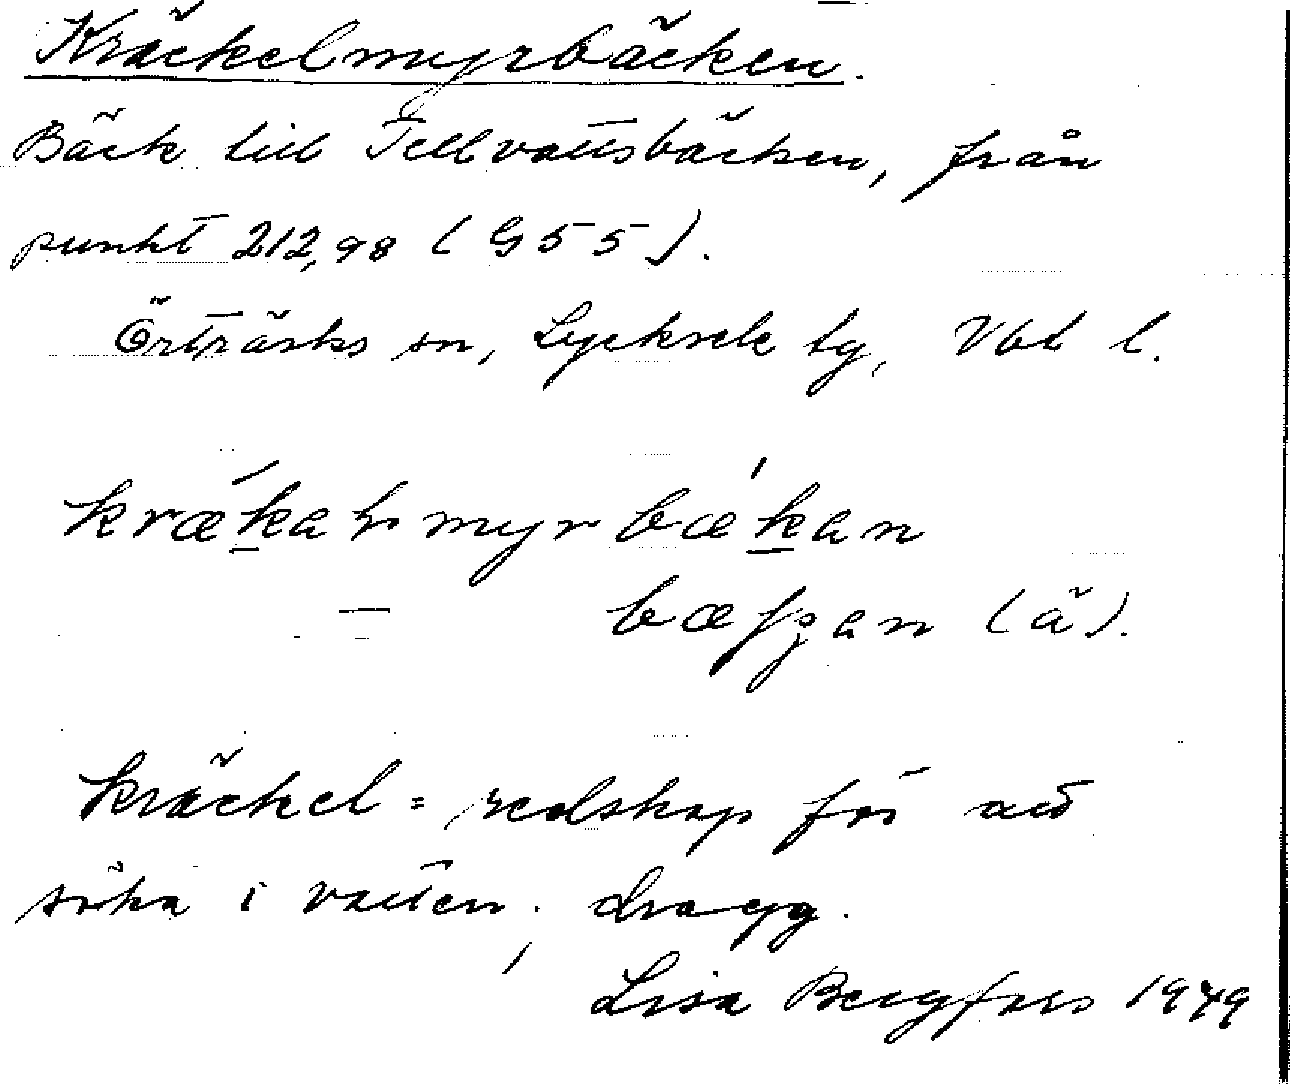 Kräckelmyrbäcken.
Bäck till Tellvattsbäcken, från
punkt 212,98 (G55).
Örträsks sn, Lycksele tg, Vbt l.
krækaḷmyrbækan
— bæʃʒan (ä).
kräckel = redskap för att
söka i vatten; dragg.
Lisa Bergfors 1949